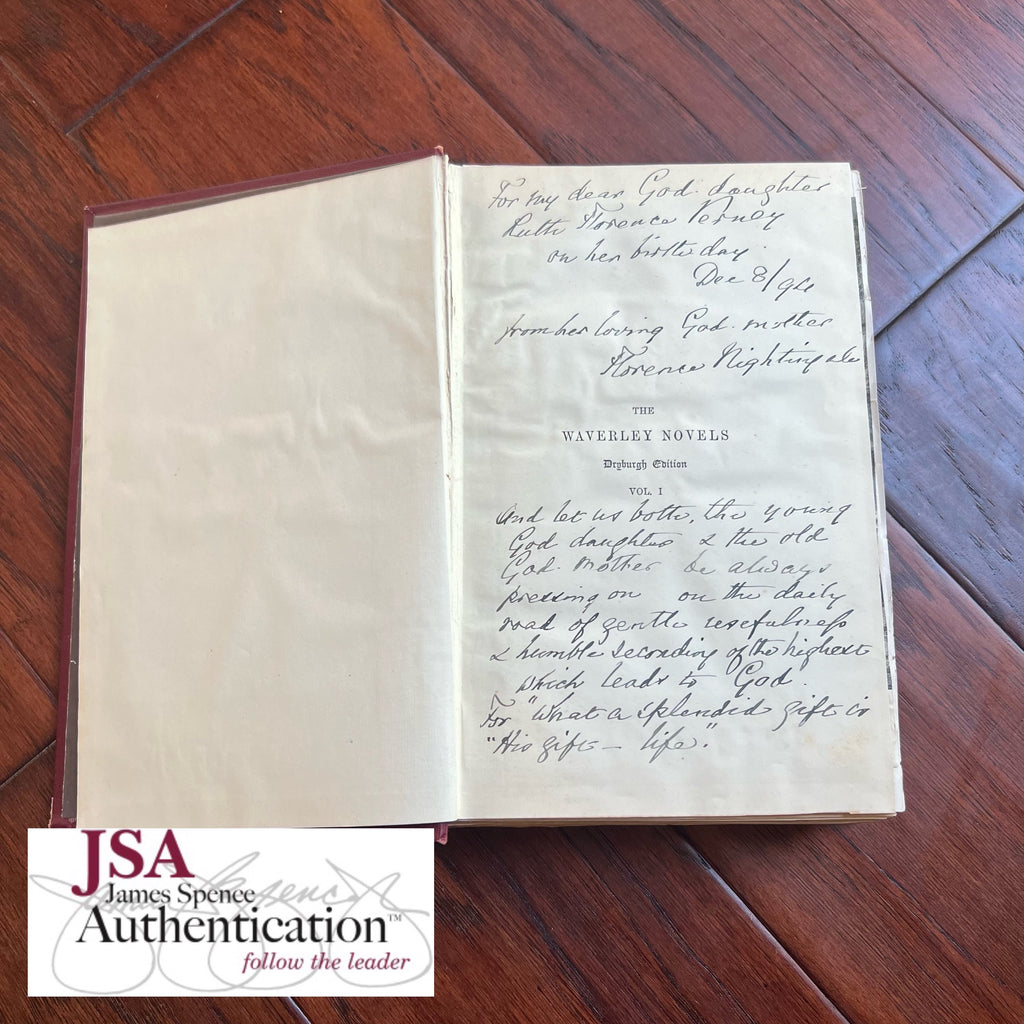 For my dear God-daughter
Ruth Florence Verney
on her birthday
Dec 8/94
from her loving God-mother
Florence Nightingale
THE
WAVERLEY NOVELS
Dryburgh Edition
VOL. I
And let us both, the young
God daughter & the old
God-Mother be always
pressing on on the daily
road of gentle usefulness
& humble seconding of the highest
which leads to God.
For "What a splendid gift is
"His gift – life".
JSA
James Spence
Authentication™
follow the leader